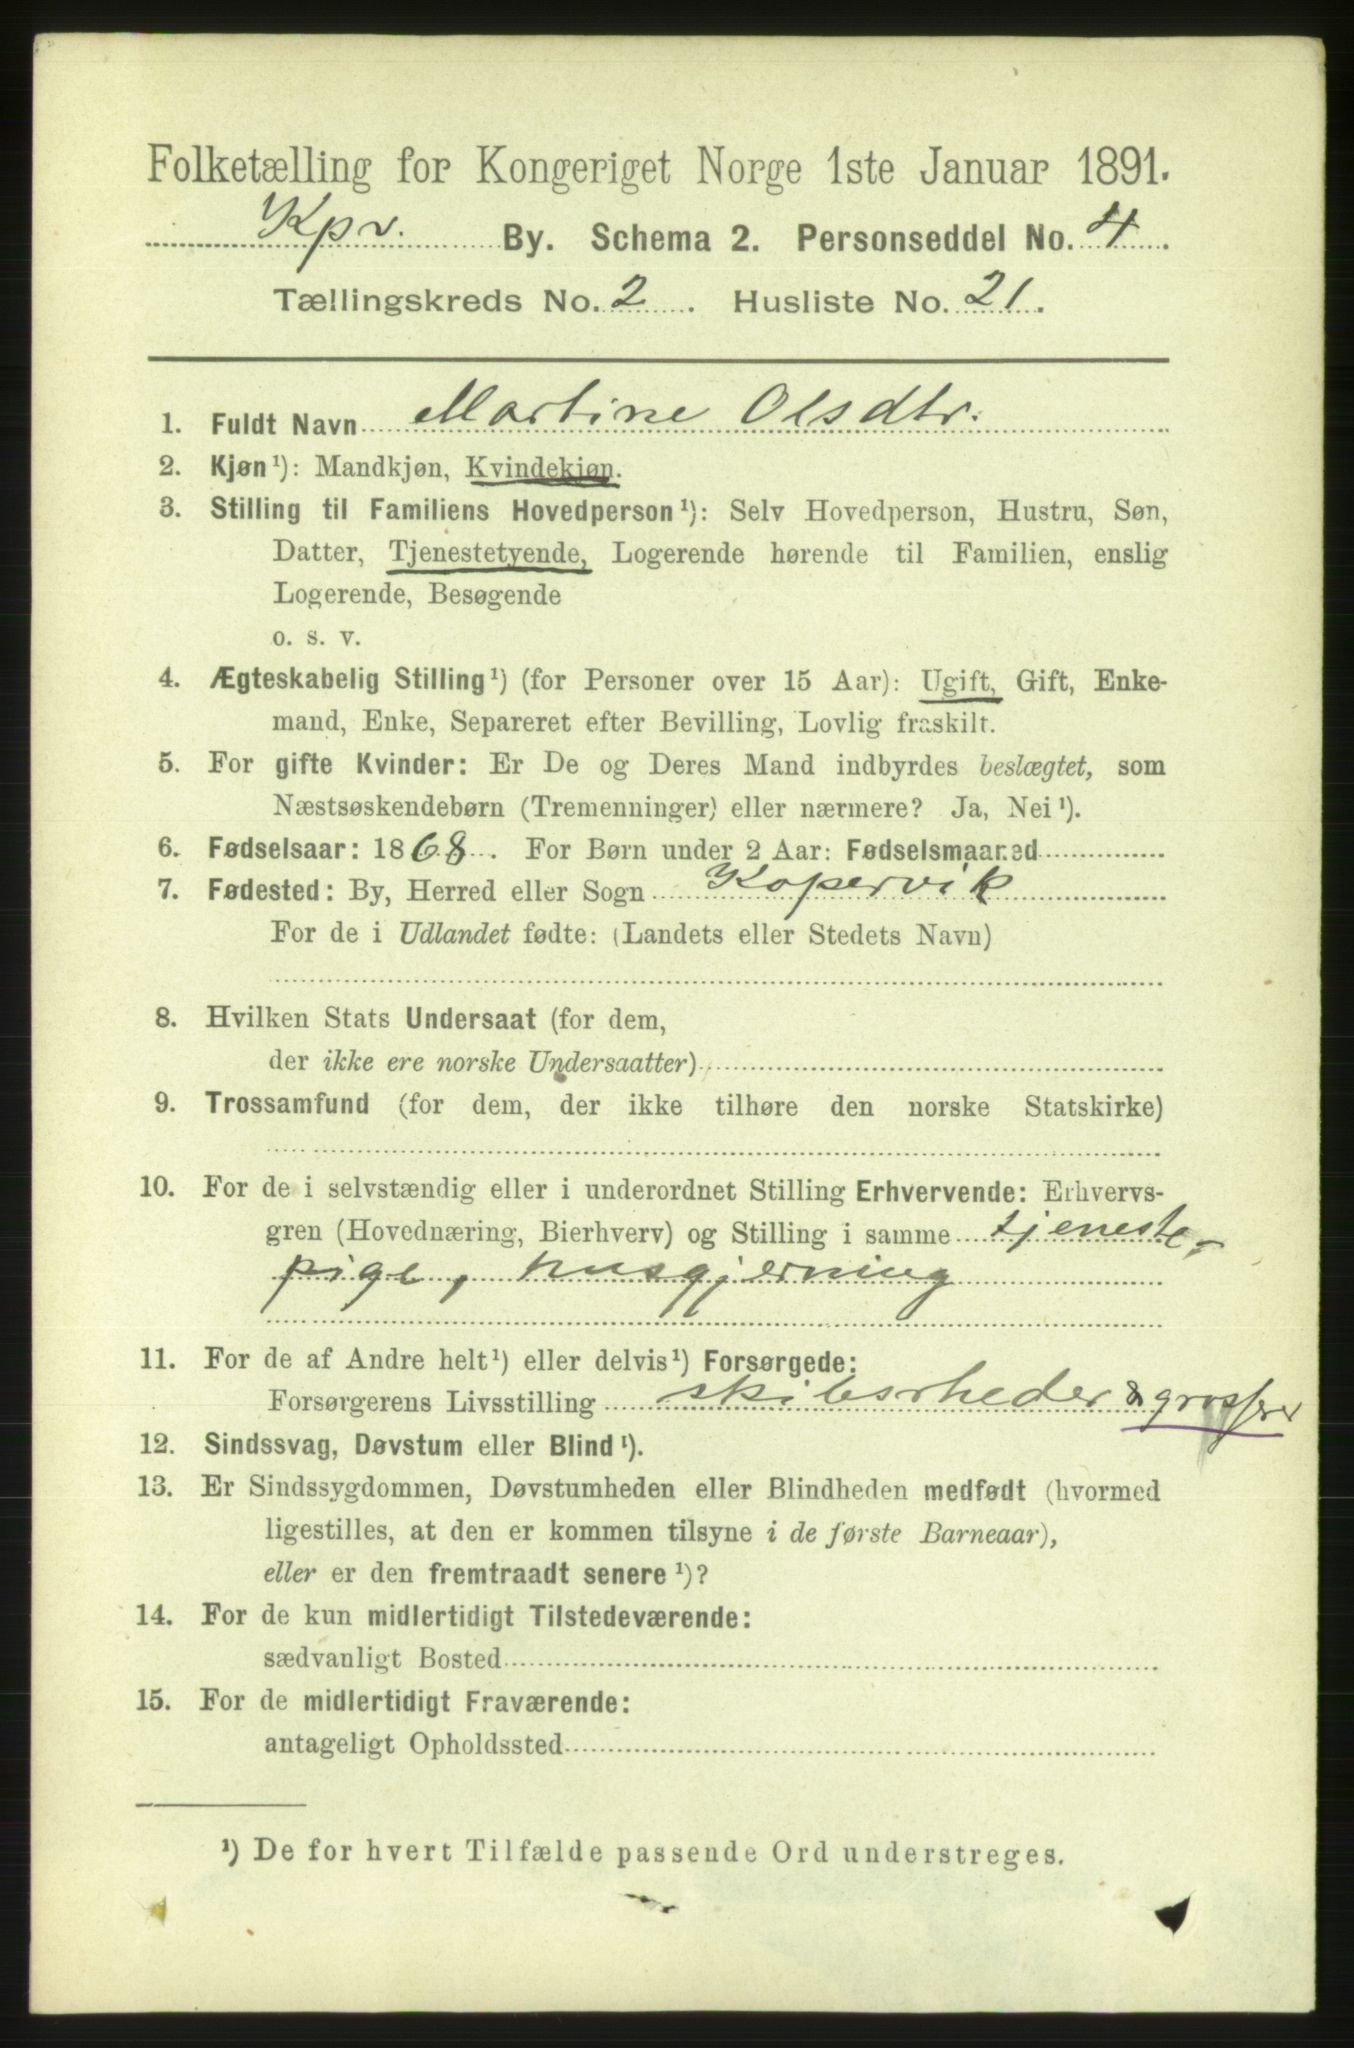 Folketælling for Kongeriget Norge 1ste Januar 1891.
Kpv. By. Schema 2. Personseddel No. 4.
Tællingskreds No. 2. Husliste No. 21.
1. Fuldt Navn Martine Olsdtr.
2. Kjøn¹): Mandkjøn, Kvindekjøn.
3. Stilling til Familiens Hovedperson¹): Selv Hovedperson, Hustru, Søn,
Datter, Tjenestetyende, Logerende hørende til Familien, enslig
Logerende, Besøgende
o. s. v.
4. Ægteskabelig Stilling¹) (for Personer over 15 Aar): Ugift, Gift, Enke-
mand, Enke, Separeret efter Bevilling, Lovlig fraskilt.
5. For gifte Kvinder: Er De og Deres Mand indbyrdes beslægtet, som
Næstsøskendebørn (Tremenninger) eller nærmere? Ja, Nei¹).
6. Fødselsaar: 1868. For Børn under 2 Aar: Fødselsmaaned
7. Fødested: By, Herred eller Sogn Kopervik
For de i Udlandet fødte: (Landets eller Stedets Navn)
8. Hvilken Stats Undersaat (for dem,
der ikke ere norske Undersaatter)
9. Trossamfund (for dem, der ikke tilhøre den norske Statskirke)
10. For de i selvstændig eller i underordnet Stilling Erhvervende: Erhvervs-
gren (Hovednæring, Bierhverv) og Stilling i samme tjeneste-
pige, husgjerning
11. For de af Andre helt¹) eller delvis¹) Forsørgede:
Forsørgerens Livsstilling skibsrheder & grosserer
12. Sindssvag, Døvstum eller Blind¹).
13. Er Sindssygdommen, Døvstumheden eller Blindheden medfødt (hvormed
ligestilles, at den er kommen tilsyne i de første Barneaar),
eller er den fremtraadt senere¹)?
14. For de kun midlertidigt Tilstedeværende:
sædvanligt Bosted
15. For de midlertidigt Fraværende:
antageligt Opholdssted
¹) De for hvert Tilfælde passende Ord understreges.